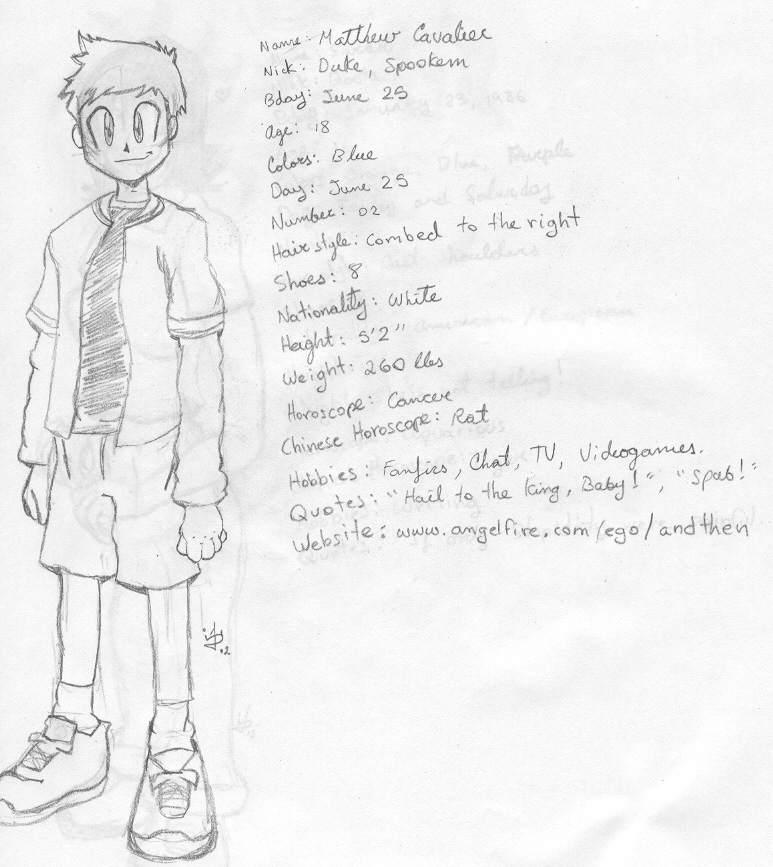 Name: Matthew Cavalier
Nick: Duke, Spookem
Bday: June 25
Age: 18
Colors: Blue
Day: June 25
Number: 02
Hair style: Combed to the right
Shoes: 8
Nationality: White
Height: 5'2"
Weight: 260 lbs
Horoscope: Cancer
Chinese Horoscope: Rat
Hobbies: Fanfics, Chat, TV, Videogames.
Quotes: "Hail to the King, Baby!", "Spab!"
Website: www.angelfire.com/ego/andthen